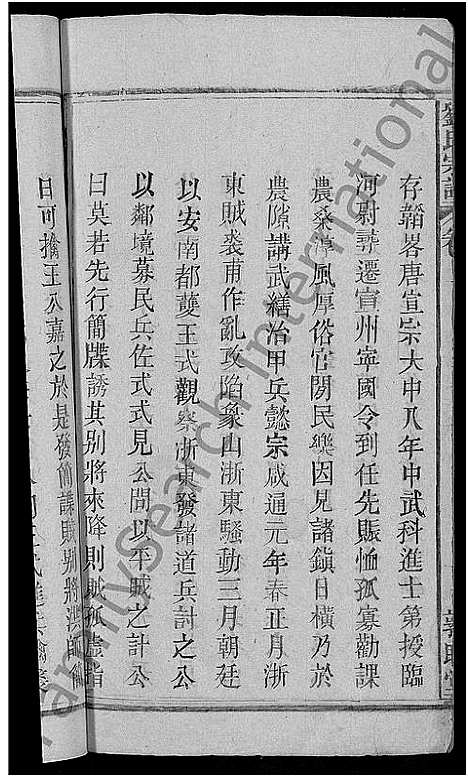 劉氏宗譜 卷
存韜畧唐宣宗大中八年中武科進士第授臨
河尉尋遷宣州寧國令到任先賑恤孤寡勸課
農桑淳風厚俗官閒民樂因見諸鎮日橫乃於
農隙講武繕治甲兵懿宗咸通元年春正月浙
東賊裘甫作亂攻陷象山浙東騷動三月朝廷
以安南都䕫王式觀察浙東發諸道兵討之公
以鄰境募民兵佐式式見公問以平賊之計公
曰莫若先行簡牒誘其別將來降則賊孤虛指
日可擒王公嘉之於是發簡諜賊別將洪師簡
FamilySearch International